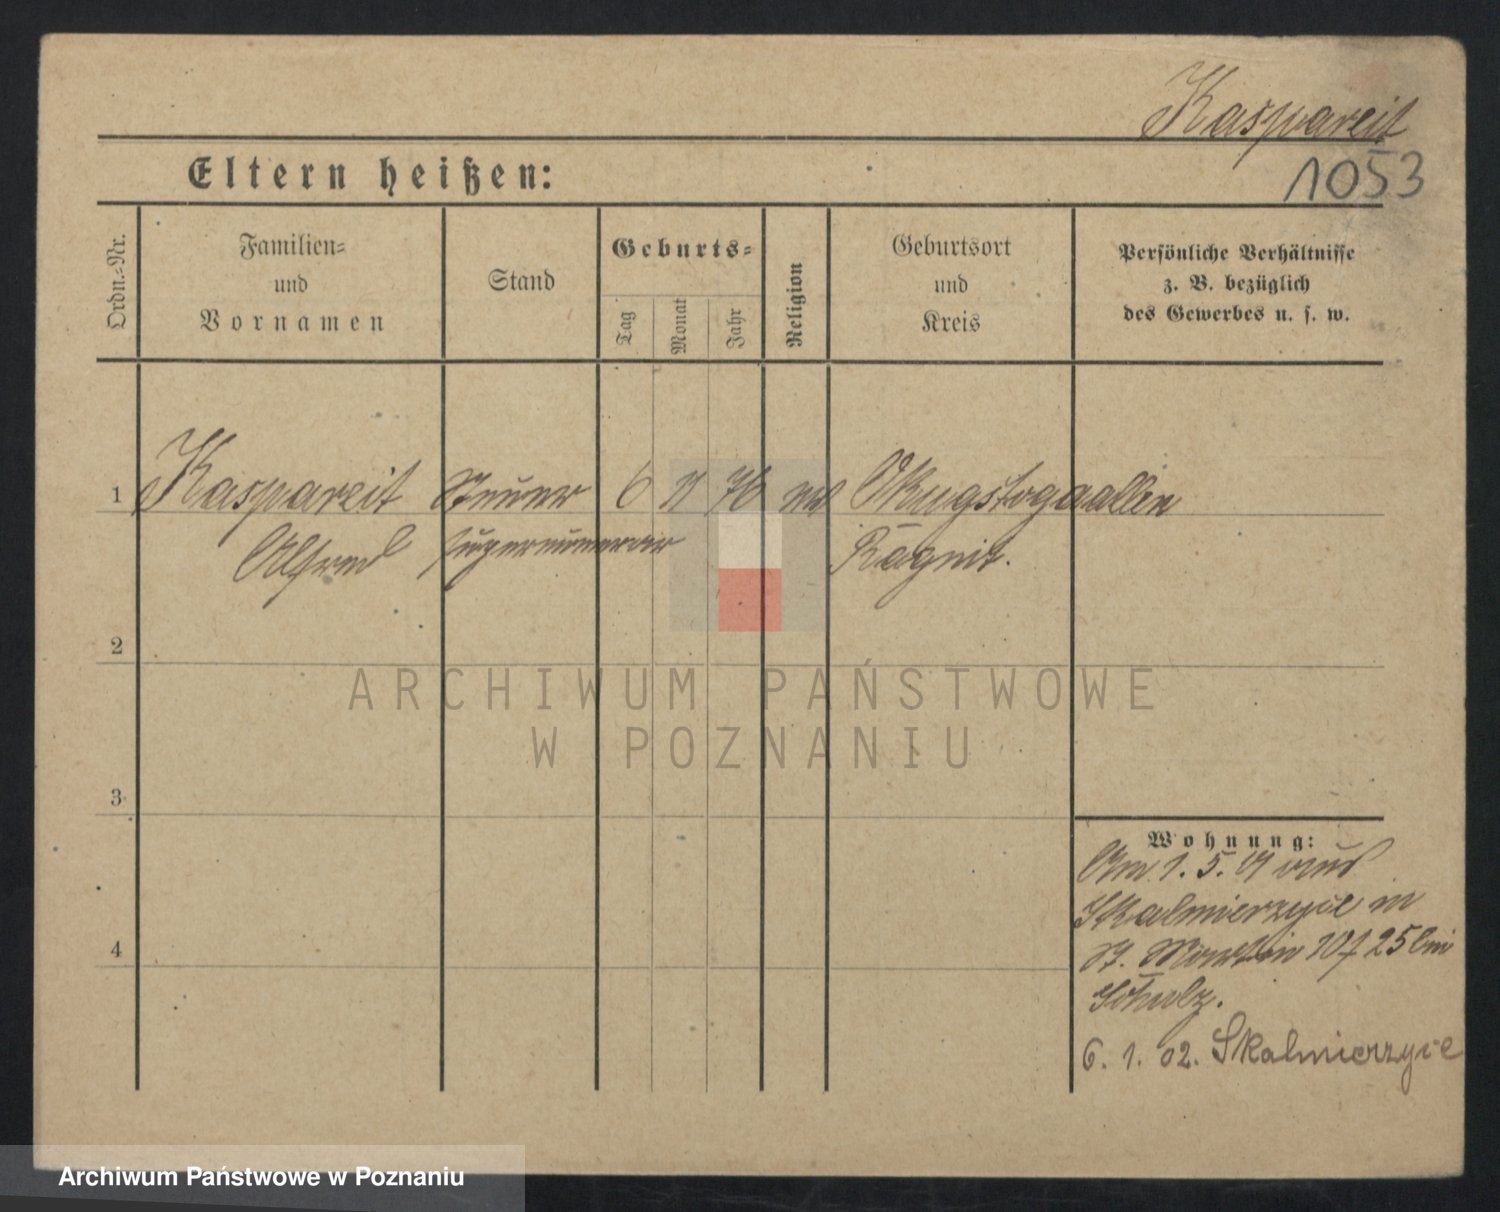 Kaspareit
1053
Eltern heißen:
Ordn.-Nr.
Familien-
und
Vornamen
Stand
Geburts-
Tag
Monat
Jahr
Religion
Geburtsort
und
Kreis
Persönliche Verhältnisse
z. B. bezüglich
des Gewerbes u. s. w.
1 Kaspareit Steuer 6 11 76
Alfred supernumerar Ragnit.
2
ARCHIWUM PAŃSTWOWE
W POZNANIU
3
Wohnung:
Am 1. 5. 01 aus
Skalmierzyce in
St. Martin 25 bei
Schulz.
4
6. 1. 02. Skalmierzyce
Archiwum Państwowe w Poznaniu